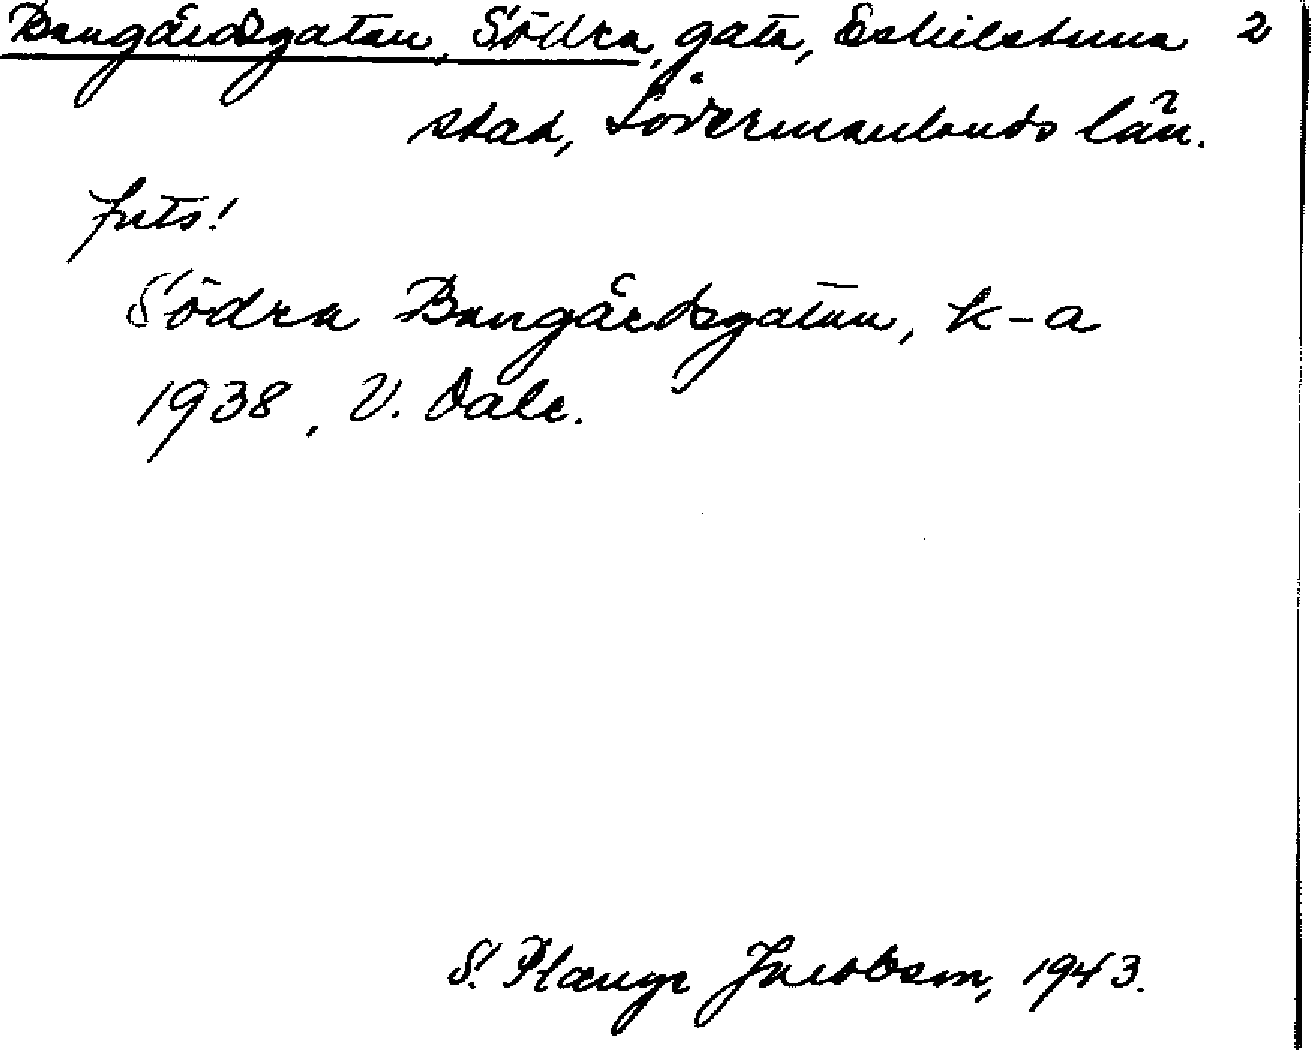 Bangårdsgatan, Södra, gata, Eskilstuna 2
stad, Södermanlands län.
forts!
Södra Bangårdsgatan, k-a
1938, V. Dale.
S. Plænge Jacobson, 1943.